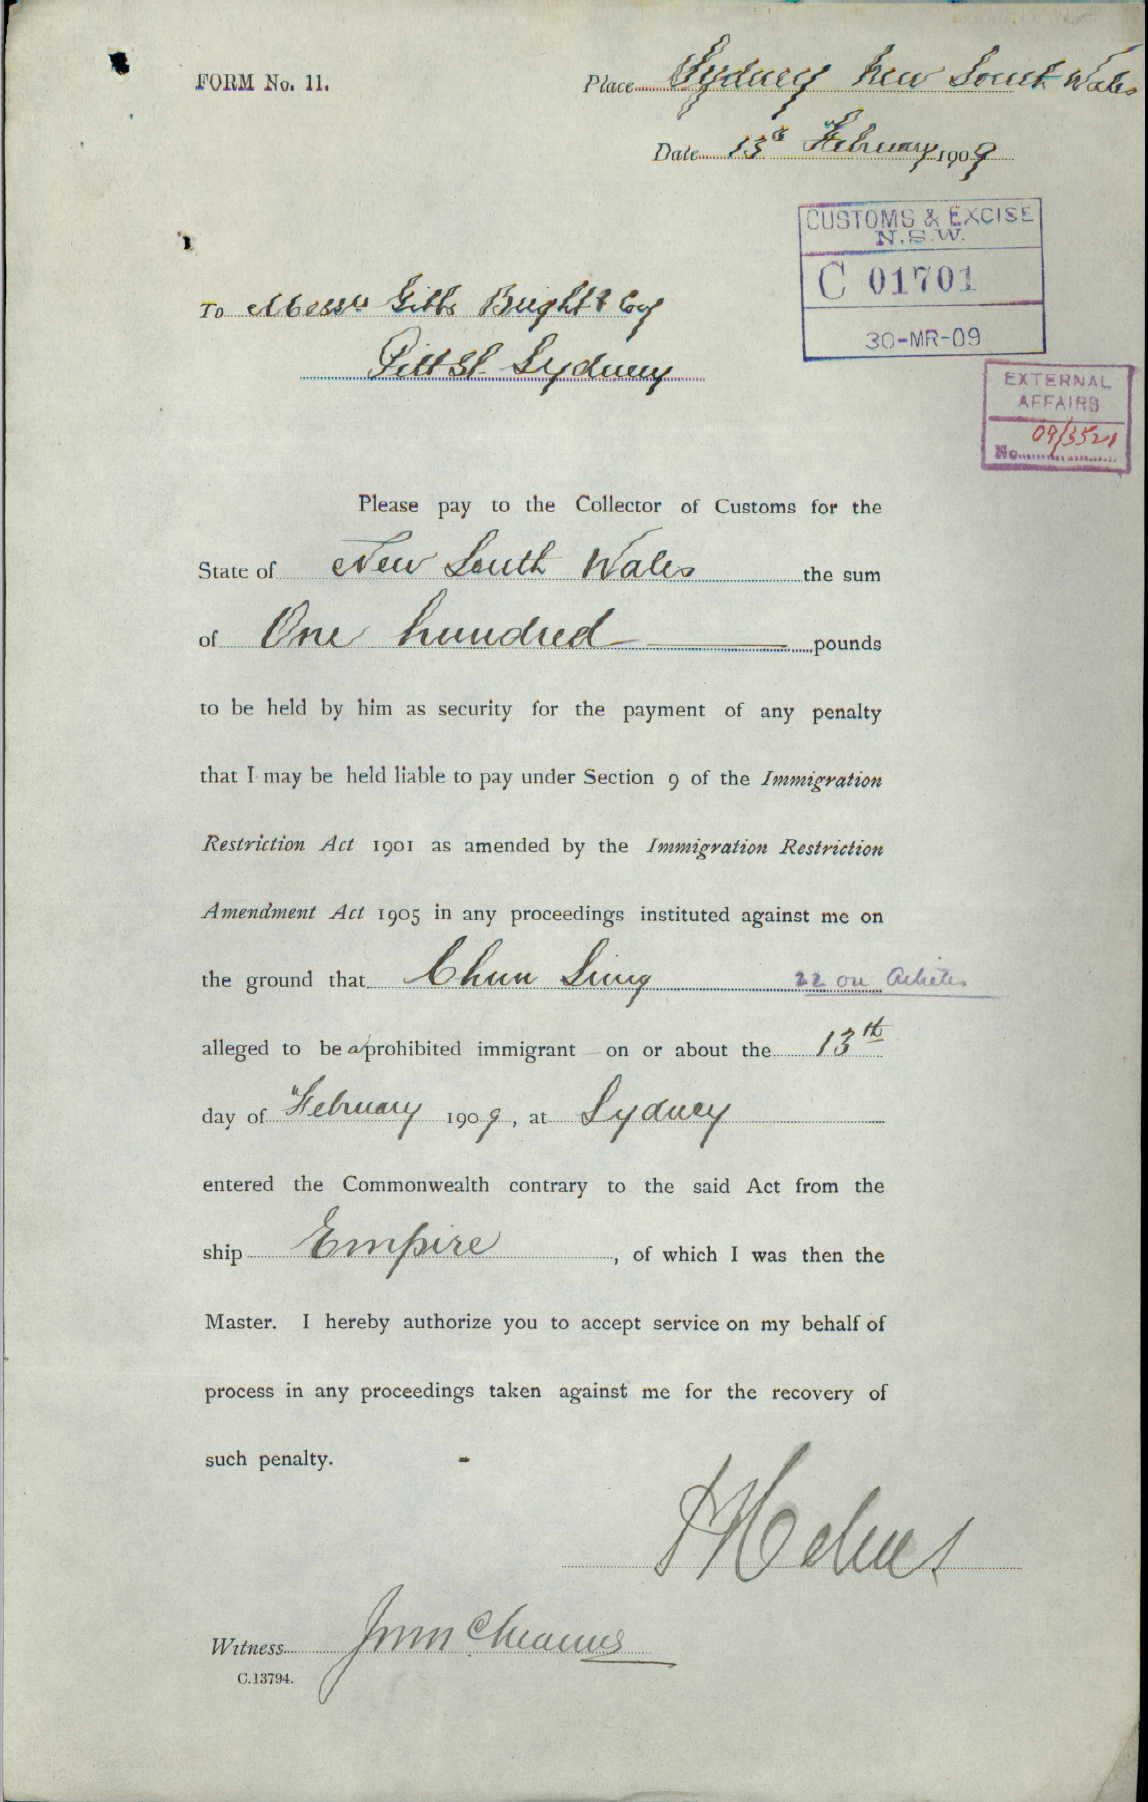 FORM No. 11.
Place Sydney New South Wales
Date 13th February 1909
CUSTOMS & EXCISE
N.S.W.
C 01701
30-MR-09
To Messrs Gibbs Bright & Coy
Pitt St. Sydney
EXTERNAL
AFFAIRS
No. 09/3521
Please pay to the Collector of Customs for the
State of New South Wales the sum
of One hundred pounds
to be held by him as security for the payment of any penalty
that I may be held liable to pay under Section 9 of the Immigration
Restriction Act 1901 as amended by the Immigration Restriction
Amendment Act 1905 in any proceedings instituted against me on
the ground that Chun Sing 22 on Articles
alleged to be a prohibited immigrant on or about the 13th
day of February 1909, at Sydney
entered the Commonwealth contrary to the said Act from the
ship Empire, of which I was then the
Master. I hereby authorize you to accept service on my behalf of
process in any proceedings taken against me for the recovery of
such penalty.
Witness
C.13794.